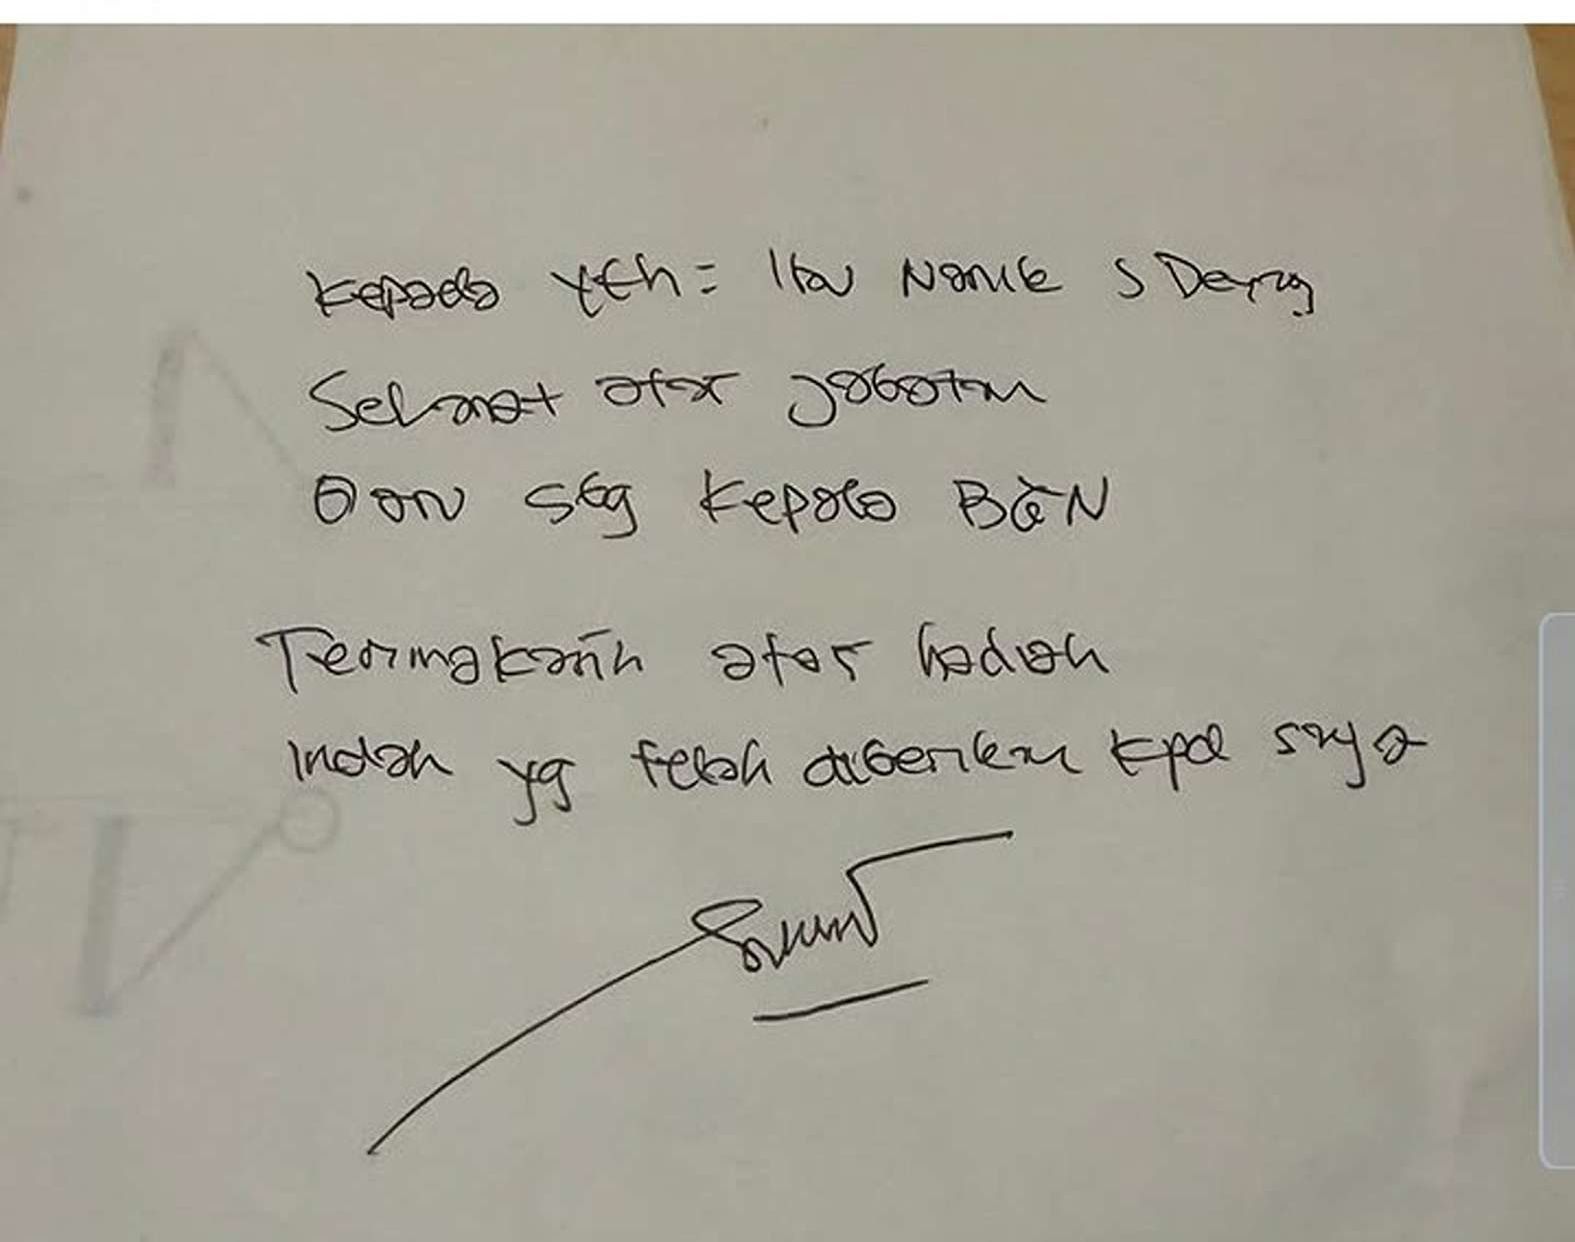 Kepada Yth = Ibu Nanik S Deyang
Selamat atas jabatan
baru sbg Kepala BGN
Terimakasih atas hadiah
Indah yg telah diberikan kpd saya